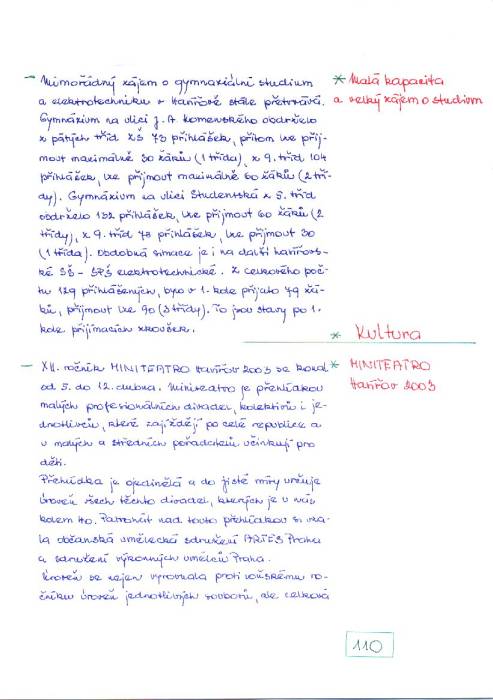 - Mimořádný zájem o gymnaziální studium
a elektrotechniku v Havířově stále přetrvává.
Gymnázium na ulici J. A. Komenského obdrželo
z pátých tříd ZŠ 73 přihlášek, přitom lze přij-
mout maximálně 30 žáků (1 třída), z 9. tříd 104
přihlášek, lze přijmout maximálně 60 žáků (2 tří-
dy). Gymnázium na ulici Studentská z 5. tříd
obdrželo 132 přihlášek, lze přijmout 60 žáků (2
třídy), z 9. tříd 78 přihlášek, lze přijmout 30
(1 třída). Obdobná situace je i na další havířov-
ské SŠ - SPŠ elektrotechnické. Z celkového poč-
tu 129 přihlášených, bylo v 1. kole přijato 79 žá-
ků, přijmout lze 90 (3 třídy). To jsou stavy po 1.
kole přijímacích zkoušek.
* Malá kapacita
a velký zájem o studium
* Kultura
- XII. ročník MINITEATRO Havířov 2003 se konal
od 5. do 12. dubna. Miniteatro je přehlídkou
malých profesionálních divadel, kolektivů i jed-
notlivců, které zajíždějí po celé republice a
u malých a středních pořadatelů účinkují pro
děti.
Přehlídka je ojedinělá a do jisté míry určuje
úroveň všech těchto divadel, kterých je u nás
kolem 40. Patronát nad touto přehlídkou si vza-
la občanská umělecká sdružení ARTES Praha
a sdružení výkonných umělců Praha.
Úroveň se nejen vyrovnala proti loňskému ro-
čníku úroveň jednotlivých souborů, ale celková
* MINITEATRO
Havířov 2003
110